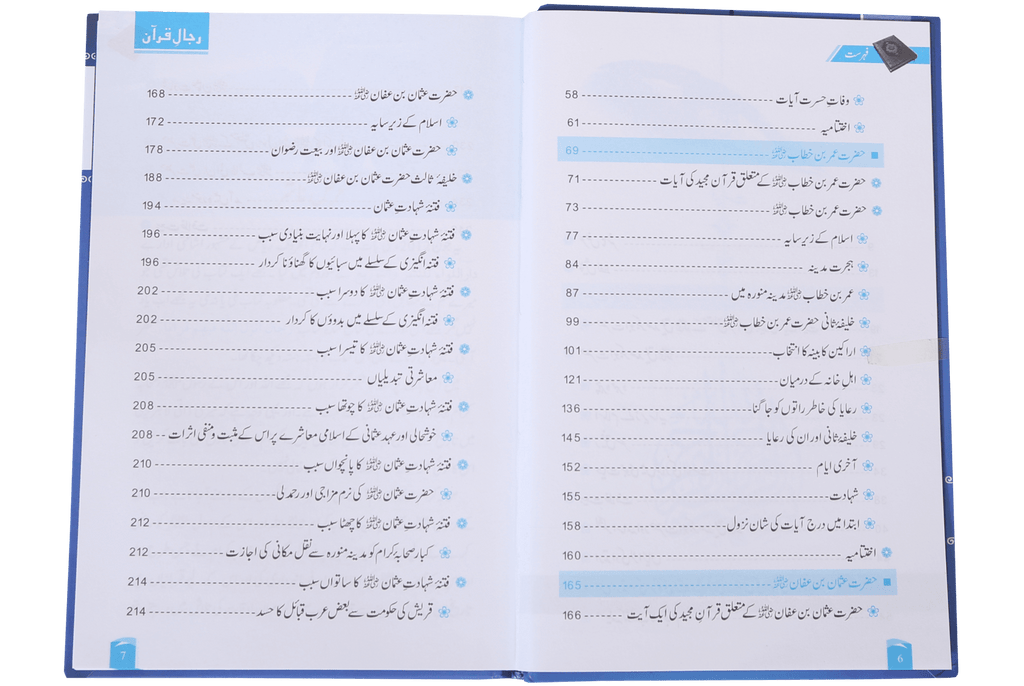 فہرست
وفاتِ حسرت آیات ---------- 58
اختتامیہ ---------- 61
حضرت عمر بن خطاب ؓ ---------- 69
حضرت عمر بن خطاب ؓ کے متعلق قرآن مجید کی آیات ---------- 71
حضرت عمر بن خطاب ؓ ---------- 73
اسلام کے زیر سایہ ---------- 77
ہجرت مدینہ ---------- 84
عمر بن خطاب ؓ مدینہ منورہ میں ---------- 87
خلیفۂ ثانی حضرت عمر بن خطاب ؓ ---------- 99
اراکین کابینہ کا انتخاب ---------- 101
اہلِ خانہ کے درمیان ---------- 121
رعایا کی خاطر راتوں کو جاگنا ---------- 136
خلیفۂ ثانی اور ان کی رعایا ---------- 145
آخری ایام ---------- 152
شہادت ---------- 155
ابتدا میں درج آیات کی شان نزول ---------- 158
اختتامیہ ---------- 160
حضرت عثمان بن عفان ؓ ---------- 165
حضرت عثمان بن عفان ؓ کے متعلق قرآنِ مجید کی ایک آیت ---------- 166
6
رجالِ قرآن
حضرت عثمان بن عفان ؓ ---------- 168
اسلام کے زیر سایہ ---------- 172
حضرت عثمان بن عفان ؓ اور بیعت رضوان ---------- 178
خلیفۂ ثالث حضرت عثمان بن عفان ؓ ---------- 188
فتنۂ شہادتِ عثمان ---------- 194
فتنۂ شہادتِ عثمان ؓ کا پہلا اور نہایت بنیادی سبب ---------- 196
فتنہ انگیزی کے سلسلے میں سبائیوں کا گھناؤنا کردار ---------- 196
فتنۂ شہادتِ عثمان ؓ کا دوسرا سبب ---------- 202
فتنہ انگیزی کے سلسلے میں بدوؤں کا کردار ---------- 202
فتنۂ شہادتِ عثمان ؓ کا تیسرا سبب ---------- 205
معاشرتی تبدیلیاں ---------- 205
فتنۂ شہادتِ عثمان ؓ کا چوتھا سبب ---------- 208
خوشحالی اور عہد عثمانی کے اسلامی معاشرے پر اس کے مثبت و منفی اثرات -- 208
فتنۂ شہادتِ عثمان ؓ کا پانچواں سبب ---------- 210
حضرت عثمان ؓ کی نرم مزاجی اور رحمدلی ---------- 210
فتنۂ شہادتِ عثمان ؓ کا چھٹا سبب ---------- 212
کبار صحابۂ کرام کو مدینہ منورہ سے نقل مکانی کی اجازت ---------- 212
فتنۂ شہادتِ عثمان ؓ کا ساتواں سبب ---------- 214
قریش کی حکومت سے بعض عرب قبائل کا حسد ---------- 214
7